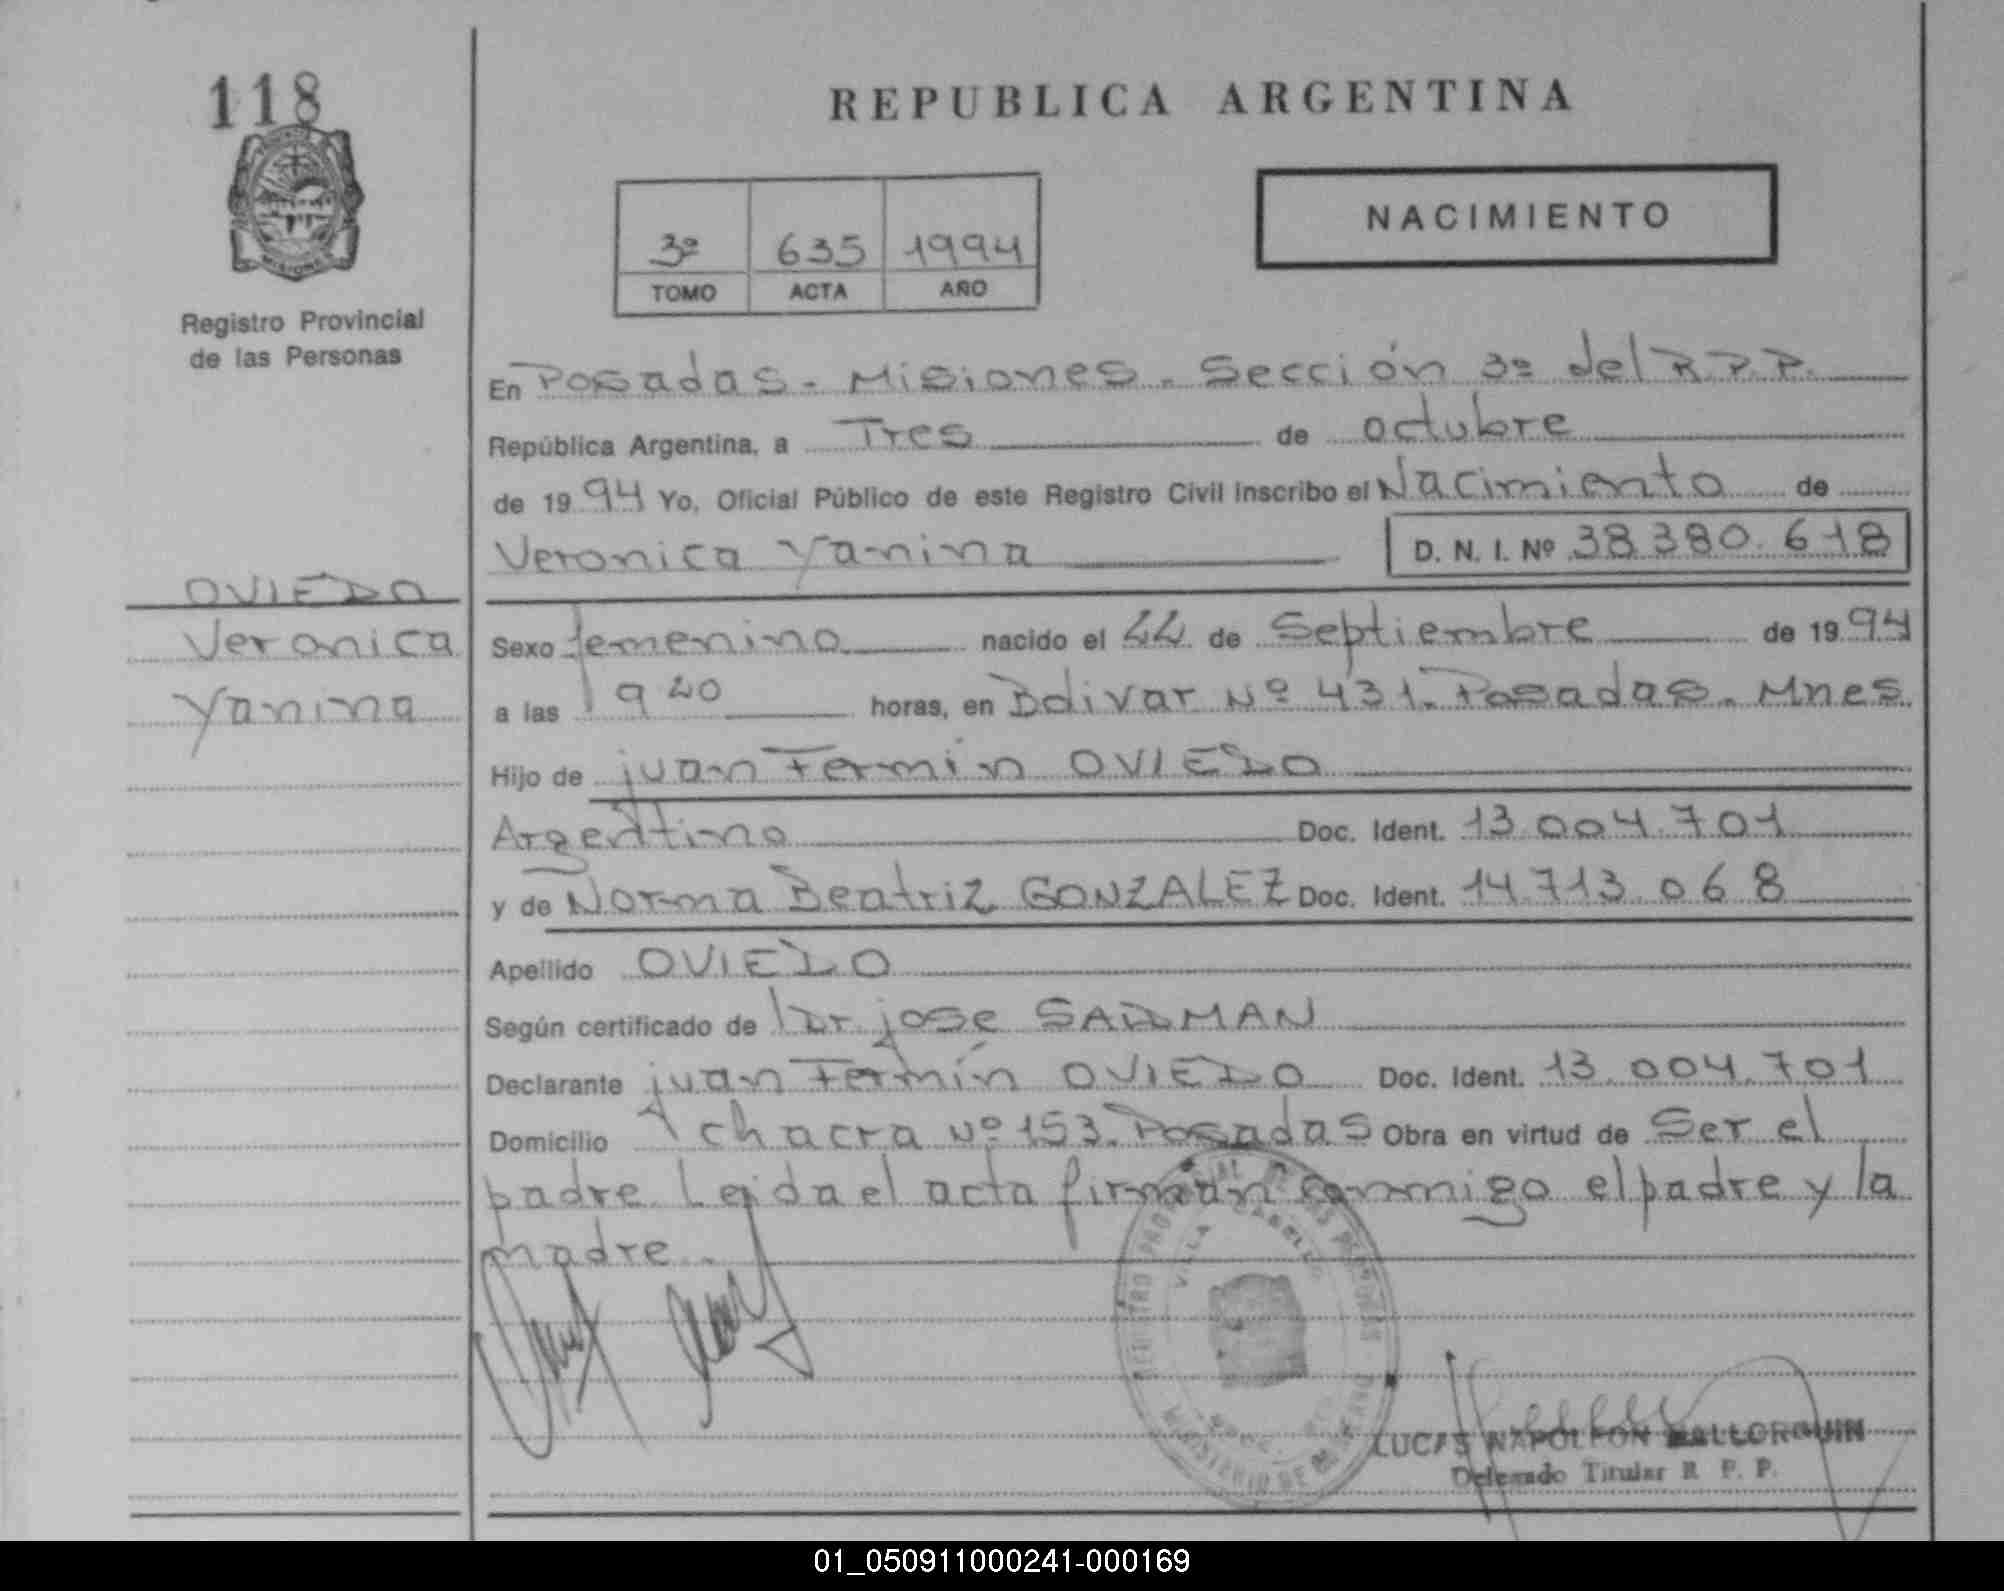 118
REPUBLICA ARGENTINA
NACIMIENTO
3º 635 1994
TOMO ACTA AÑO
MISIONES
Registro Provincial
de las Personas
En Posadas - Misiones - Sección 3º del R.P.P.
República Argentina, a Tres de octubre
de 1994 Yo, Oficial Público de este Registro Civil Inscribo el Nacimiento de
Veronica Yanina D. N. I. Nº 38.380.618
OVIEDO
Veronica
Yanina
Sexo femenino nacido el 22 de Septiembre de 1994
a las 9 20 horas, en Bolivar Nº 431. Posadas - Mnes.
Hijo de juan Fermin OVIEDO
Argentino Doc. Ident. 13.004.701
y de Norma Beatriz GONZALEZ Doc. Ident. 14.713.068
Apellido OVIEDO
Según certificado de Dr jose
Declarante juan Fermín OVIEDO Doc. Ident. 13.004.701
Domicilio chacra Nº 153. Posadas Obra en virtud de Ser el
padre. Leida el acta firman conmigo el padre y la
madre.
VILLA CABELLO
LUCAS NAPOLEON MALLORQUIN
Delegado Titular R. P. P.
01_050911000241-000169